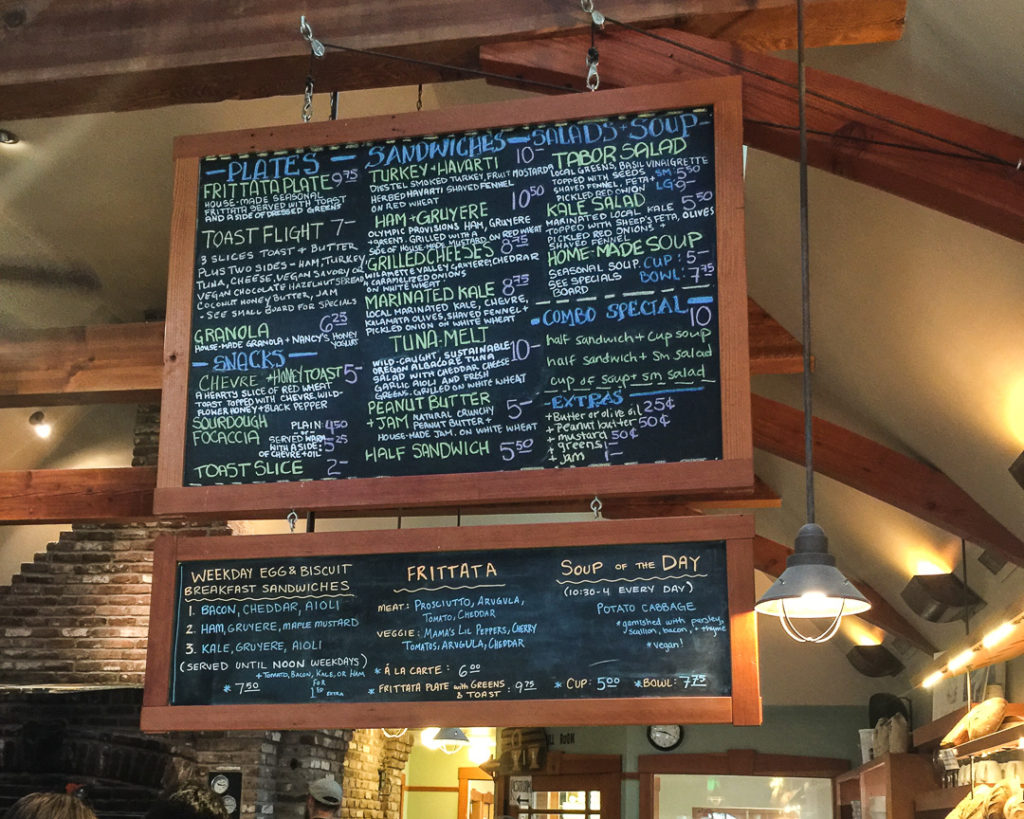 PLATES
FRITTATA PLATE 9 75
HOUSE-MADE SEASONAL
FRITTATA SERVED WITH TOAST
AND A SIDE OF DRESSED GREENS
TOAST FLIGHT 7-
3 SLICES TOAST & BUTTER
PLUS TWO SIDES - HAM, TURKEY
TUNA, CHEESE, VEGAN SAVORY OR
VEGAN CHOCOLATE HAZELNUT SPREAD
COCONUT HONEY BUTTER, JAM
- SEE SMALL BOARD FOR SPECIALS
GRANOLA 6 25
HOUSE-MADE GRANOLA + NANCY'S HONEY YOGURT
SNACKS
CHEVRE + HONEY TOAST 5-
A HEARTY SLICE OF RED WHEAT
TOAST TOPPED WITH CHEVRE, WILD-
FLOWER HONEY + BLACK PEPPER
SOURDOUGH FOCACCIA
PLAIN: 4 50
OR
SERVED WARM
WITH A SIDE: 5 25
OF CHEVRE + OIL
TOAST SLICE 2-
SANDWICHES
TURKEY + HAVARTI 10-
DIESTEL SMOKED TURKEY, FRUIT MOSTARDA
HERBED HAVARTI SHAVED FENNEL
ON RED WHEAT
HAM + GRUYERE 10 50
OLYMPIC PROVISIONS HAM, GRUYERE
+ GREENS. GRILLED WITH A
SIDE OF HOUSE-MADE MUSTARD ON RED WHEAT
GRILLED CHEESES 8 75
WILLAMETTE VALLEY GRUYERE, CHEDDAR
& CARAMELIZED ONIONS
ON WHITE WHEAT
MARINATED KALE 8 75
LOCAL MARINATED KALE, CHEVRE,
KALAMATA OLIVES, SHAVED FENNEL +
PICKLED ONION ON WHITE WHEAT
TUNA-MELT 10-
WILD-CAUGHT, SUSTAINABLE
OREGON ALBACORE TUNA
SALAD WITH CHEDDAR CHEESE
GARLIC AIOLI AND FRESH
GREENS. GRILLED ON WHITE WHEAT
PEANUT BUTTER
+ JAM 5-
NATURAL CRUNCHY
PEANUT BUTTER +
HOUSE-MADE JAM. ON WHITE WHEAT
HALF SANDWICH 5 50
SALADS + SOUP
TABOR SALAD
LOCAL GREENS, BASIL VINAIGRETTE
TOPPED WITH SEEDS SM 5 50
SHAVED FENNEL, FETA + LG 9-
PICKLED RED ONION
KALE SALAD 5 50
MARINATED LOCAL KALE
TOPPED WITH SHEEP'S FETA, OLIVES
PICKLED RED ONIONS +
SHAVED FENNEL
HOME-MADE SOUP
SEASONAL SOUP CUP: 5-
SEE SPECIALS BOWL: 7 75
BOARD
COMBO SPECIAL 10
half sandwich + cup soup
half sandwich + sm salad
cup of soup + sm salad
EXTRAS
+ Butter or olive oil 25¢
+ peanut butter 50¢
+ mustard 50¢
+ greens 1-
+ jam 1-
WEEKDAY EGG & BISCUIT
BREAKFAST SANDWICHES
1. BACON, CHEDDAR, AIOLI
2. HAM, GRUYERE, MAPLE MUSTARD
3. KALE, GRUYERE, AIOLI
(SERVED UNTIL NOON WEEKDAYS)
+ TOMATO, BACON, KALE, OR HAM
FOR
* 7 50 1 50 EXTRA
FRITTATA
MEAT: PROSCIUTTO, ARUGULA,
TOMATO, CHEDDAR
VEGGIE: MAMA'S LIL PEPPERS, CHERRY
TOMATOS, ARUGULA, CHEDDAR
* Á LA CARTE: 6 00
* FRITTATA PLATE WITH GREENS & TOAST: 9 75
SOUP OF THE DAY
(10:30-4 EVERY DAY)
POTATO CABBAGE
*garnished with parsley,
scallion, bacon, + thyme
*vegan!
* CUP: 5 00 * BOWL: 7 75